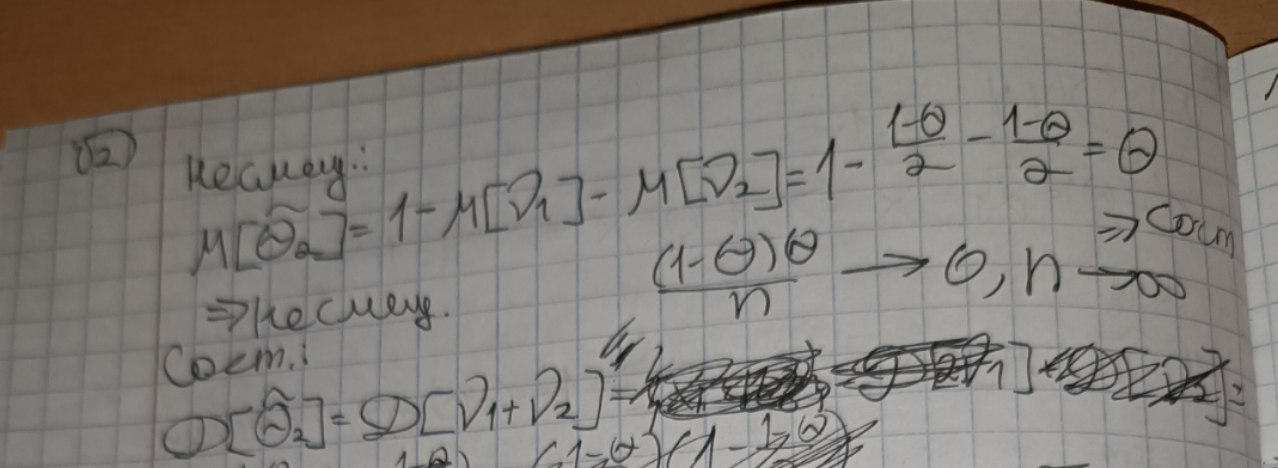 √2)
несмещ.:
M[θ̃₂] = 1 - M[ν₁] - M[ν₂] = 1 - (1-θ)/2 - (1-θ)/2 = θ
⇒ несмещ.
(1-θ)θ/n → 0, n → ∞ ⇒ сост
Сост.:
D[θ̃₂] = D[ν₁+ν₂] =